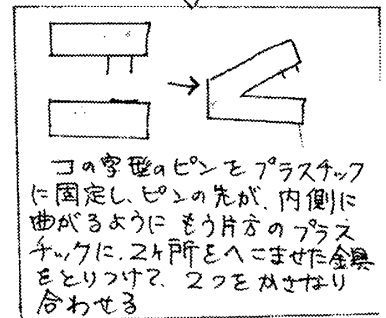 コの字型のピンをプラスチック
に固定し、ピンの先が、内側に
曲がるように もう片方のプラス
チックに、2ヶ所をへこませた金具
をとりつけて、2つをかさなり
合わせる